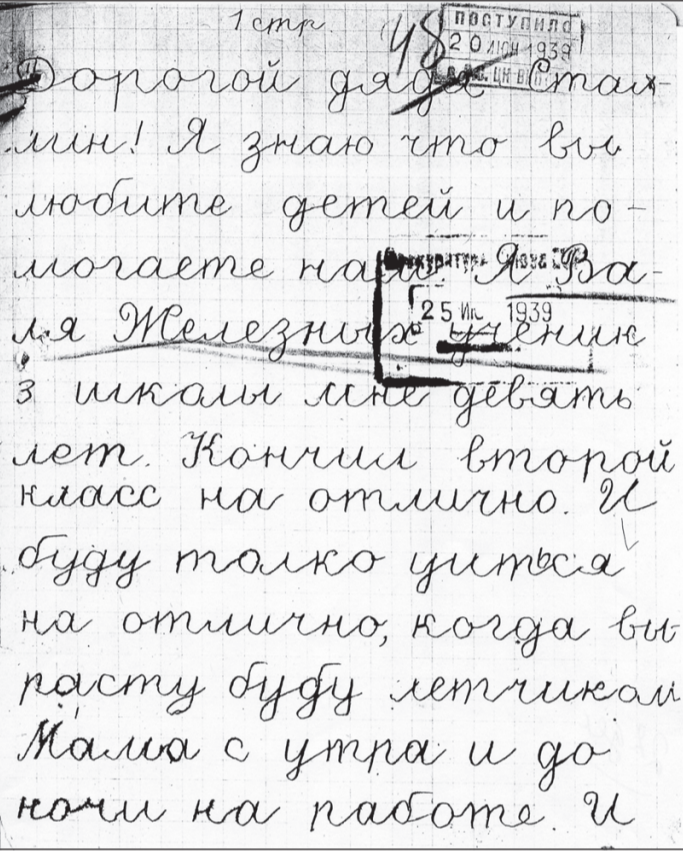 1 стр.
48
ПОСТУПИЛО
20 ИЮН 1939
Дорогой дядя Стал-
лин! Я знаю что вы
любите детей и по-
могаете нам. Я Ва-
25 Ию 1939
ля Железных ученик
3 школы мне девять
лет. Кончил второй
класс на отлично. И
буду толко уиться
на отлично, когда вы-
расту буду летчиком
Мама с утра и до
ночи на работе. И